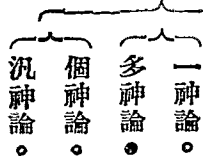 一神論。
多神論。
個神論。
汎神論。